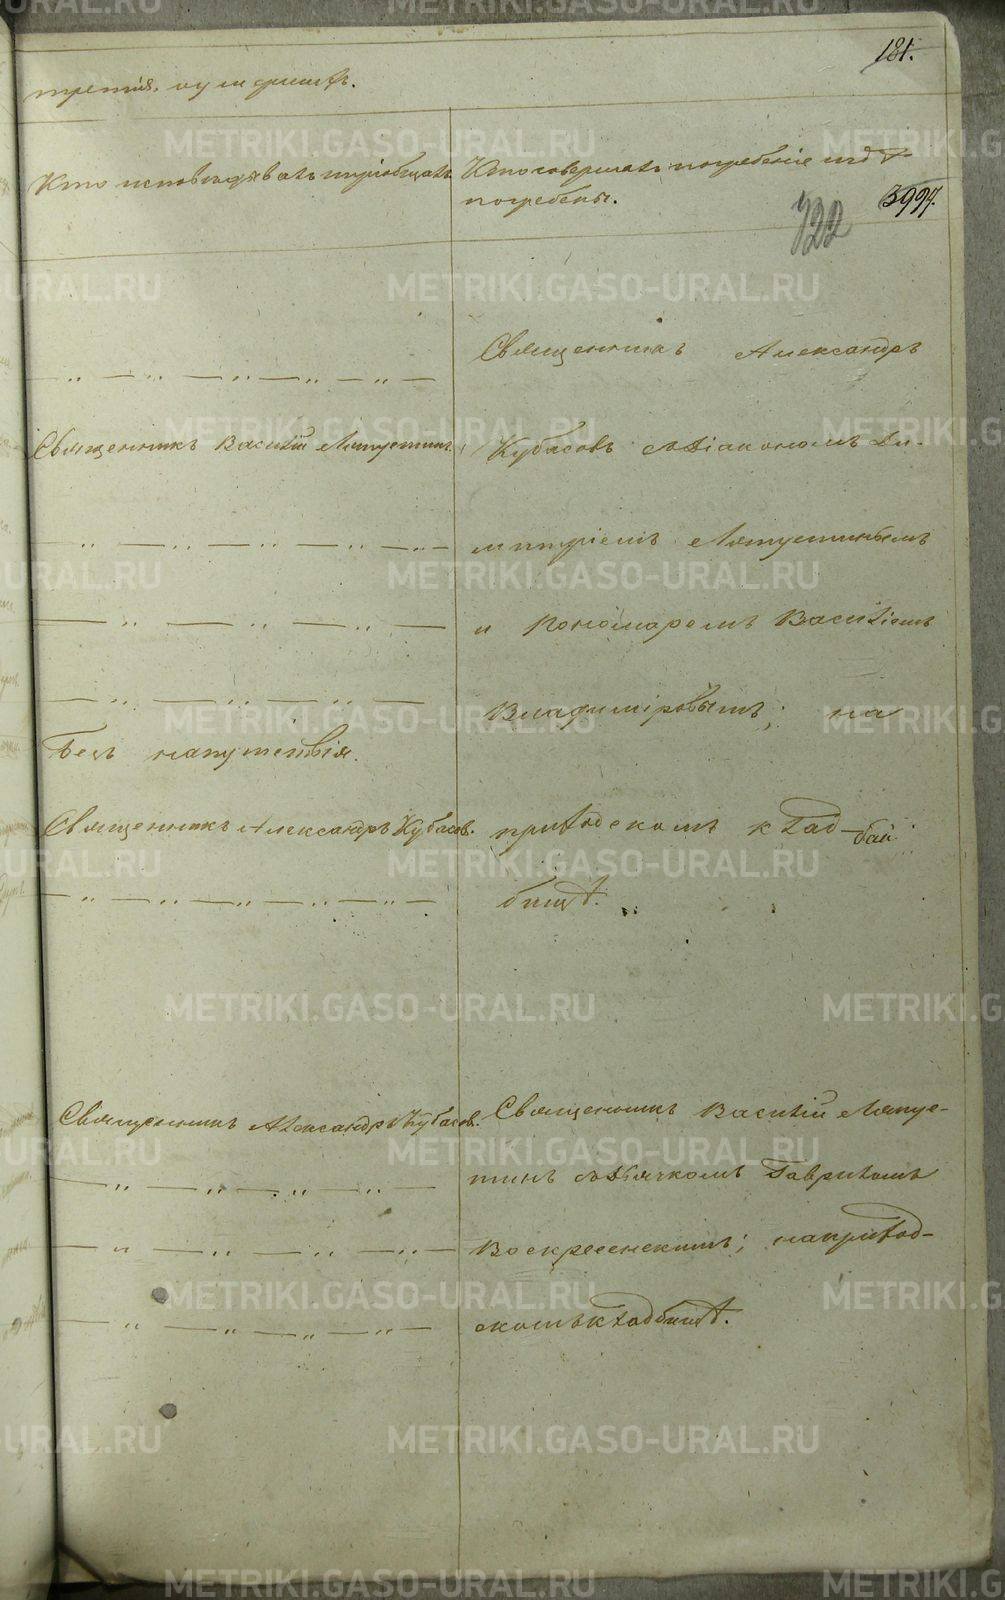 181.
третія, о умершихъ.
Кто исповѣдывалъ и пріобщалъ.
Кто совершалъ погребеніе и гдѣ
погребены.
722
3994.
Священникъ Александръ
Священникъ Василій Ляпустинъ.
Кубасовъ съ Діакономъ Ди-
митріемъ Ляпустинымъ
и Пономаремъ Василіемъ
Владиміровымъ; на
Безъ напутствія.
Священникъ Александръ Кубасов.
приходскомъ клад-
бищѣ.
Священникъ Александръ Кубасов.
Священникъ Василій Ляпус-
тинъ съ Дьячкомъ Гавриломъ
Воскресенскимъ; на приход-
скомъ кладбищѣ.
METRIKI.GASO-URAL.RU